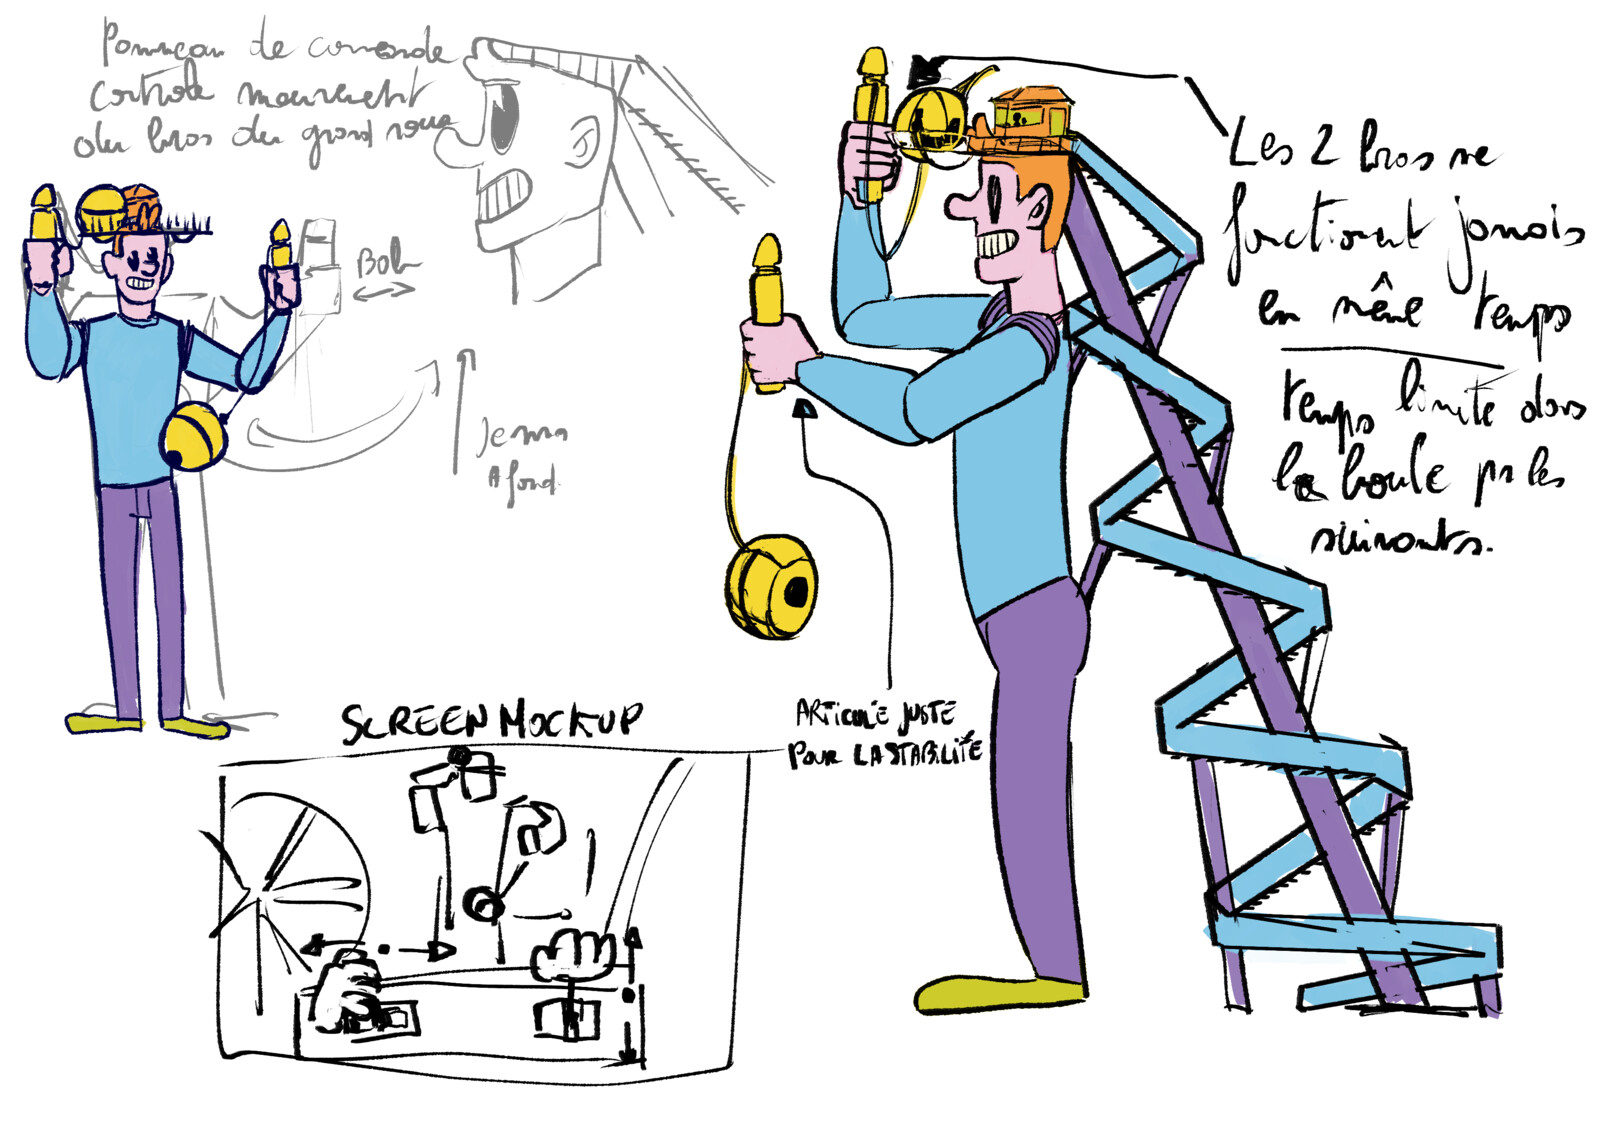 Pommeau de commande
controle mouvement
du bras du grand roux
Bob
Jemma
A fond.
Les 2 bras ne
fonctionnent jamais
en même temps
temps limité dans
la boule pr les
suivants.
SCREEN MOCKUP
ARTICULÉ JUSTE
POUR LA STABILITÉ